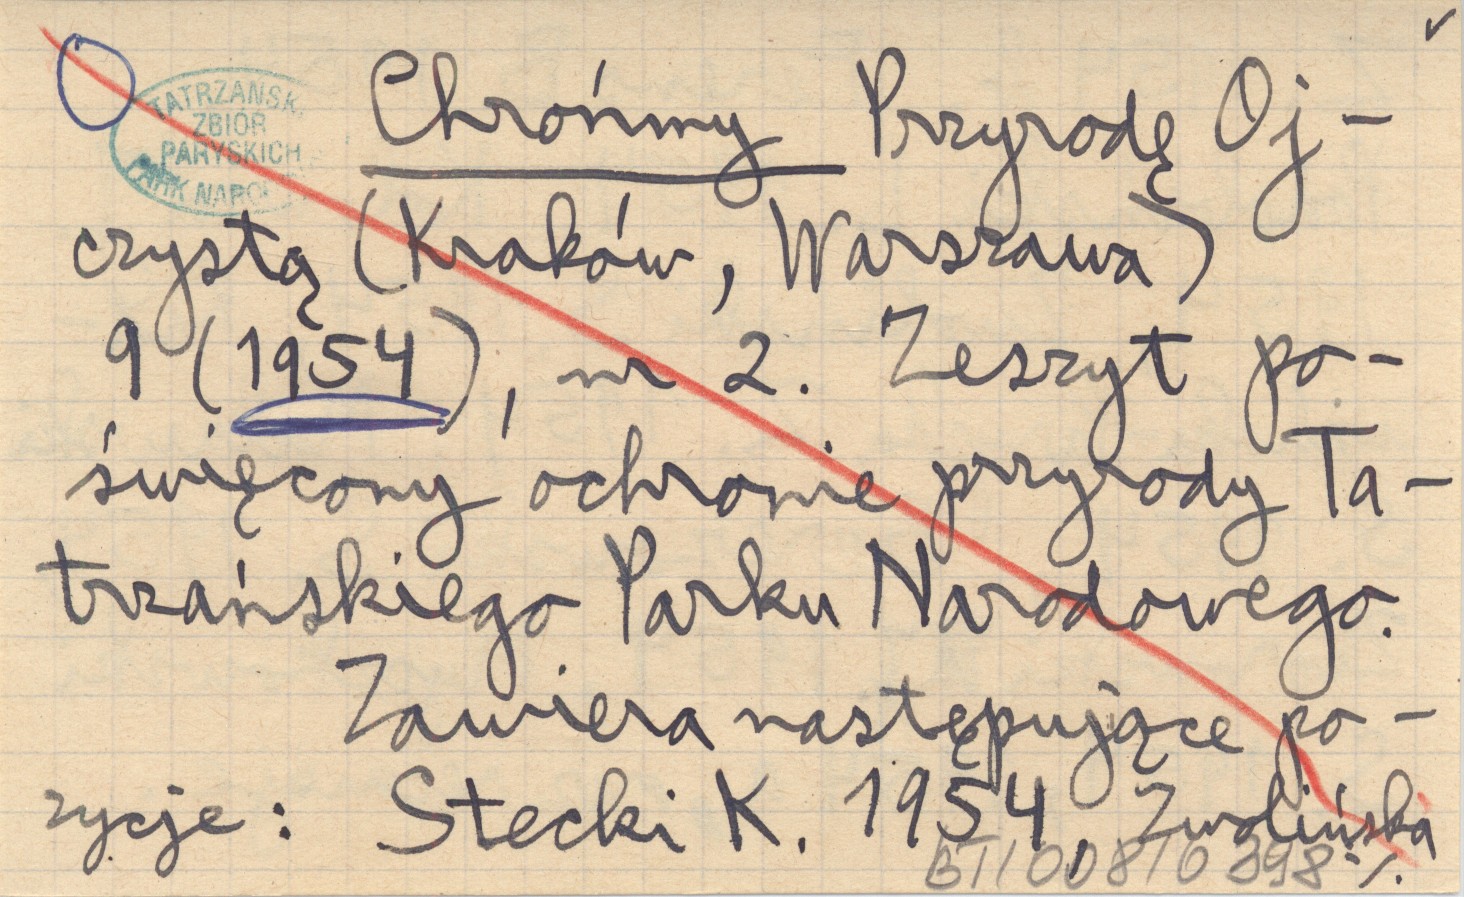 ✓
TATRZAŃSK
ZBIÓR
PARYSKICH
PARK NARO
Chrońmy Przyrodę Oj-
czystą (Kraków, Warszawa)
9 (1954), nr 2. Zeszyt po-
święcony ochronie przyrody Ta-
trzańskiego Parku Narodowego.
Zawiera następujące po-
zycje: Stecki K. 1954, Zwolińska
BT/008/0898 ./.